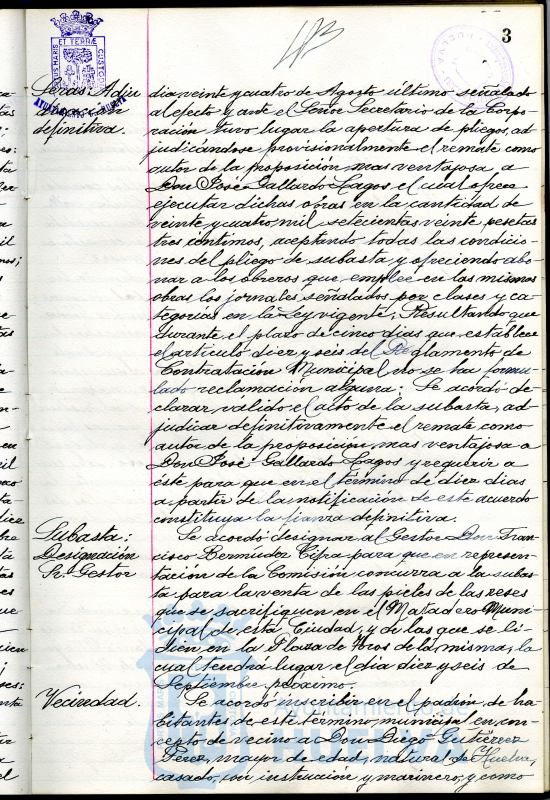 3
Seras: Adju
dicación
definitiva.
dia veinte y cuatro de Agosto último señalado
al efecto y ante el Señor Secretario de la Corpo-
ración tuvo lugar la apertura de pliegos, ad-
judicándose provisionalmente el remate como
autor de la proposición mas ventajosa a
Don José Gallardo Lagos el cual ofrece
ejecutar dichas obras en la cantidad de
veinte y cuatro mil setecientas veinte pesetas
tres céntimos, aceptando todas las condicio-
nes del pliego de subasta y ofreciendo abo-
nar a los obreros que emplee en las mismas
obras los jornales señalados por clases y ca-
tegorias en la Ley vigente; Resultando que
durante el plazo de cinco dias que establece
el articulo diez y seis del Reglamento de
Contratación Municipal no se ha formu-
lado reclamación alguna: Se acordó de-
clarar valido el acto de la subasta, ad-
judicar definitivamente el remate como
autor de la proposición mas ventajosa a
Don José Gallardo Lagos y requerir a
éste para que en el término de diez dias
a partir de la notificación de este acuerdo
constituya la fianza definitiva.
Subasta:
Designación
Sr. Gestor
Se acordó designar al Gestor Don Fran-
cisco Bermudez Cipa para que en represen-
tación de la Comisión concurra a la subas-
ta para la venta de las pieles de las reses
que se sacrifiquen en el Matadero Muni-
cipal de esta Ciudad, y de las que se li-
dien en la Plaza de Toros de la misma, la
cual tendrá lugar el dia diez y seis de
Septiembre próximo.
Vecindad.
Se acordó inscribir en el padrón de ha-
bitantes de este término municipal en con-
cepto de vecino a Don Diego Gutiérrez
Pérez, mayor de edad, natural de Huelva,
casado, con instrucción y marinero, y como
Ayuntamiento de
HUELVA